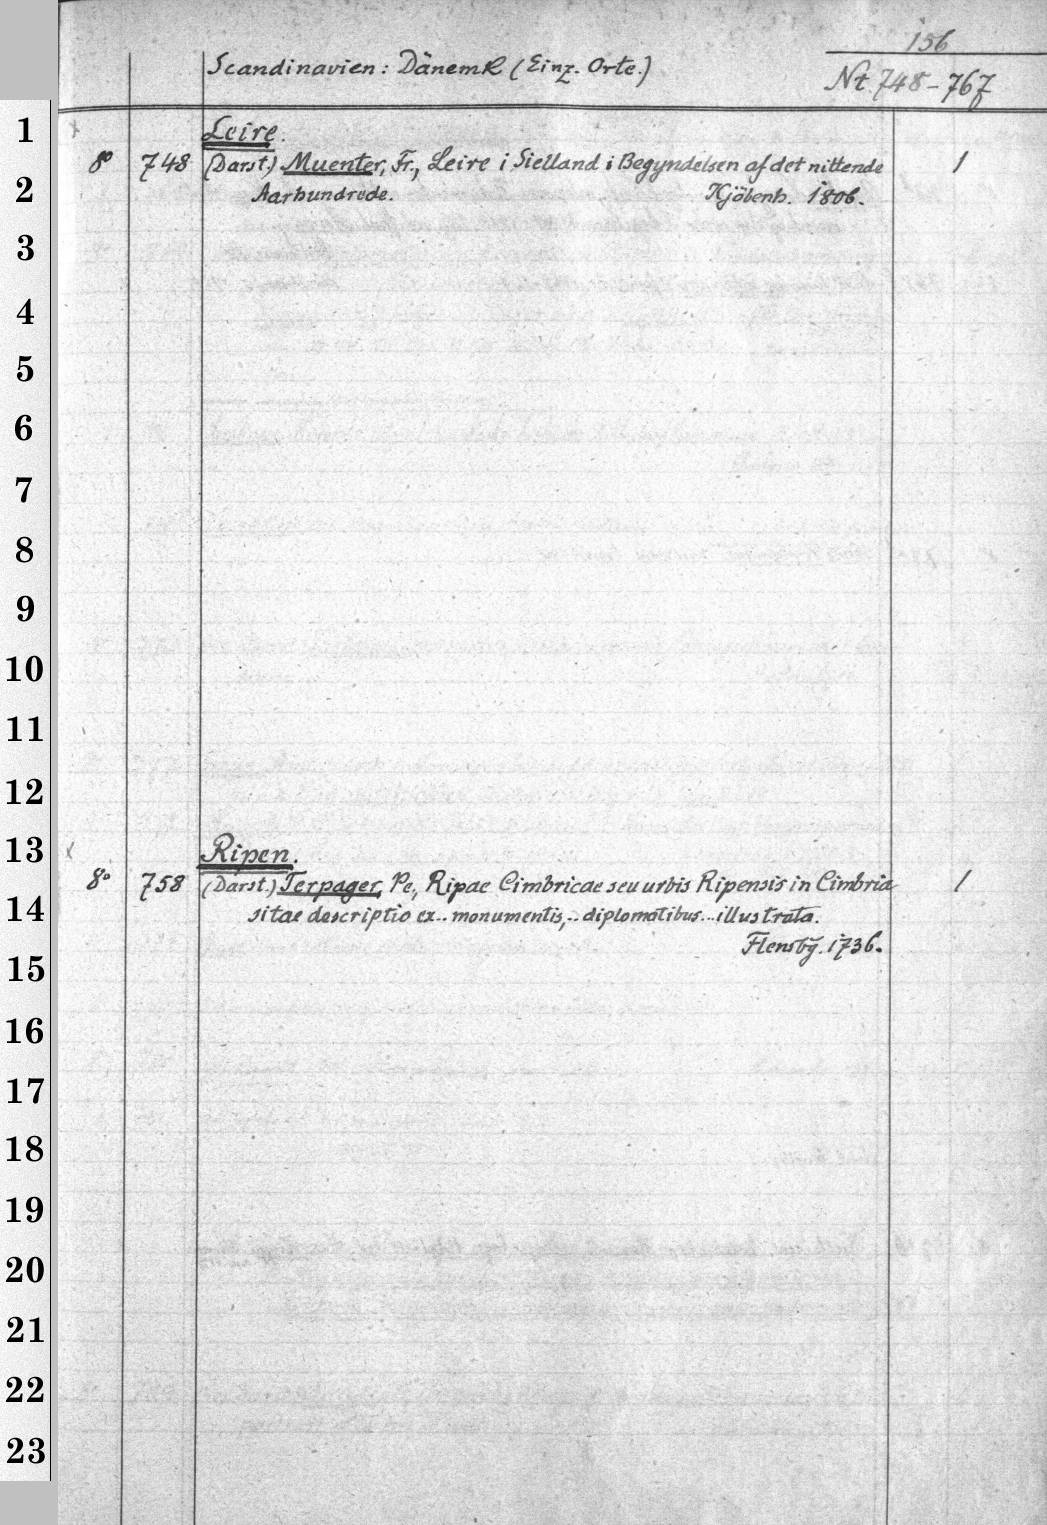 156
Scandinavien: Dänemk (Einz. Orte.)
Nt. 748-767
1
Leire.
8° 748 (Darst.) Muenter, Fr., Leire i Sielland i Begyndelsen af det nittende 1
2
Aarhundrede. Kjöbenh. 1806.
3
4
5
6
7
8
9
10
11
12
13
Ripen.
8° 758 (Darst.) Terpager, Pe, Ripae Cimbricae seu urbis Ripensis in Cimbria 1
14
sitae descriptio ex.. monumentis,.. diplomatibus... illustrata.
Flensbg. 1736.
15
16
17
18
19
20
21
22
23